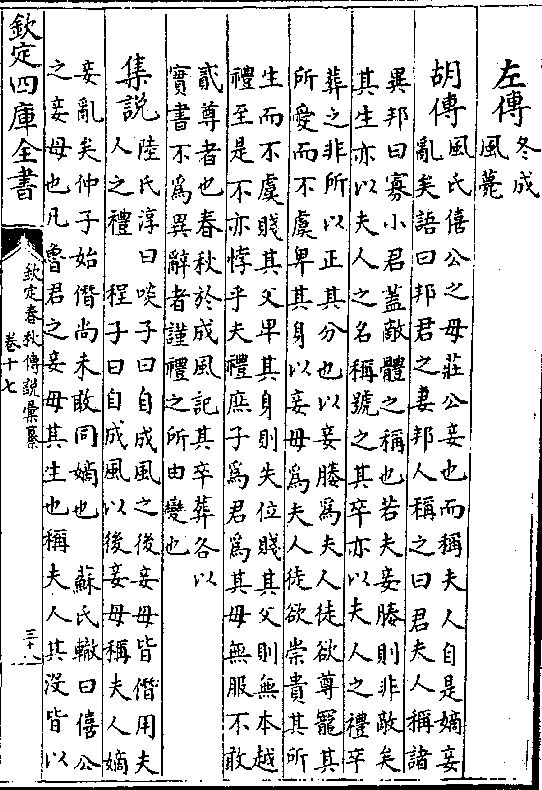 左傳 冬成
風薨
胡傳 風氏僖公之母莊公妾也而稱夫人自是嫡妾
亂矣語曰邦君之妻邦人稱之曰君夫人稱諸
異邦曰寡小君蓋敵體之稱也若夫妾媵則非敵矣
其生亦以夫人之名稱號之其卒亦以夫人之禮卒
葬之非所以正其分也以妾媵為夫人徒欲尊寵其
所愛而不虞卑其身以妾母爲夫人徒欲崇貴其所
生而不虞賤其父卑其身則失位賤其父則無本越
禮至是不亦悖乎夫禮庶子爲君爲其母無服不敢
貳尊者也春秋於成風記其卒葬各以
實書不爲異辭者謹禮之所由變也
集説 陸氏淳曰啖子曰自成風之後妾母皆僭用夫
人之禮 程子曰自成風以後妾母稱夫人嫡
妾亂矣仲子始僭尚未敢同嫡也 蘇氏轍曰僖公
之妾母也凡魯君之妾母其生也稱夫人其沒皆以
欽定四庫全書
欽定春秋傳說彙纂
卷十七
三十八